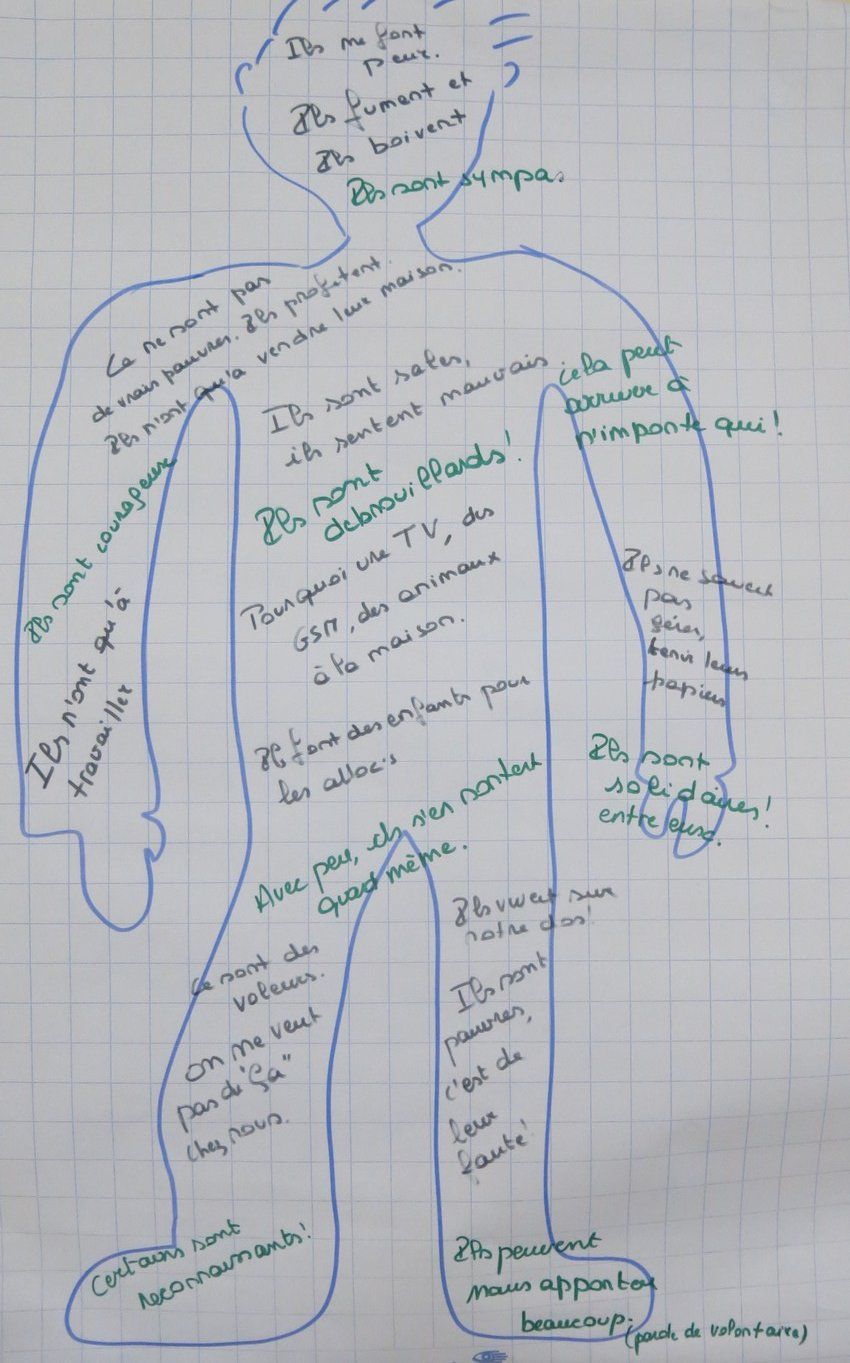 Ils me font
peur.
Ils fument et
Ils boivent
Ils sont sympa.
Ce ne sont pas
de vrais pauvres. Ils profitent.
Ils n'ont qu'à vendre leur maison.
Ils sont sales,
ils sentent mauvais
cela peut
arriver à
n'importe qui!
Ils sont
debrouillards!
Ils sont courageux
Ils n'ont qu'à
travailler
Pourquoi une TV, des
GSM, des animaux
à la maison.
Ils ne savent
pas
gérer,
tenir leurs
papiers
Ils font des enfants pour
les alloc's
Ils sont
solidaires!
entre eux.
Avec peu, ils s'en sortent
quand même.
Ils vivent sur
notre dos!
Ce sont des
voleurs.
On ne veut
pas de "ça"
chez nous.
Ils sont
pauvres,
c'est de
leur
faute!
Certains sont
reconnaissants!
Ils peuvent
nous apporter
beaucoup.
(parole de volontaire)